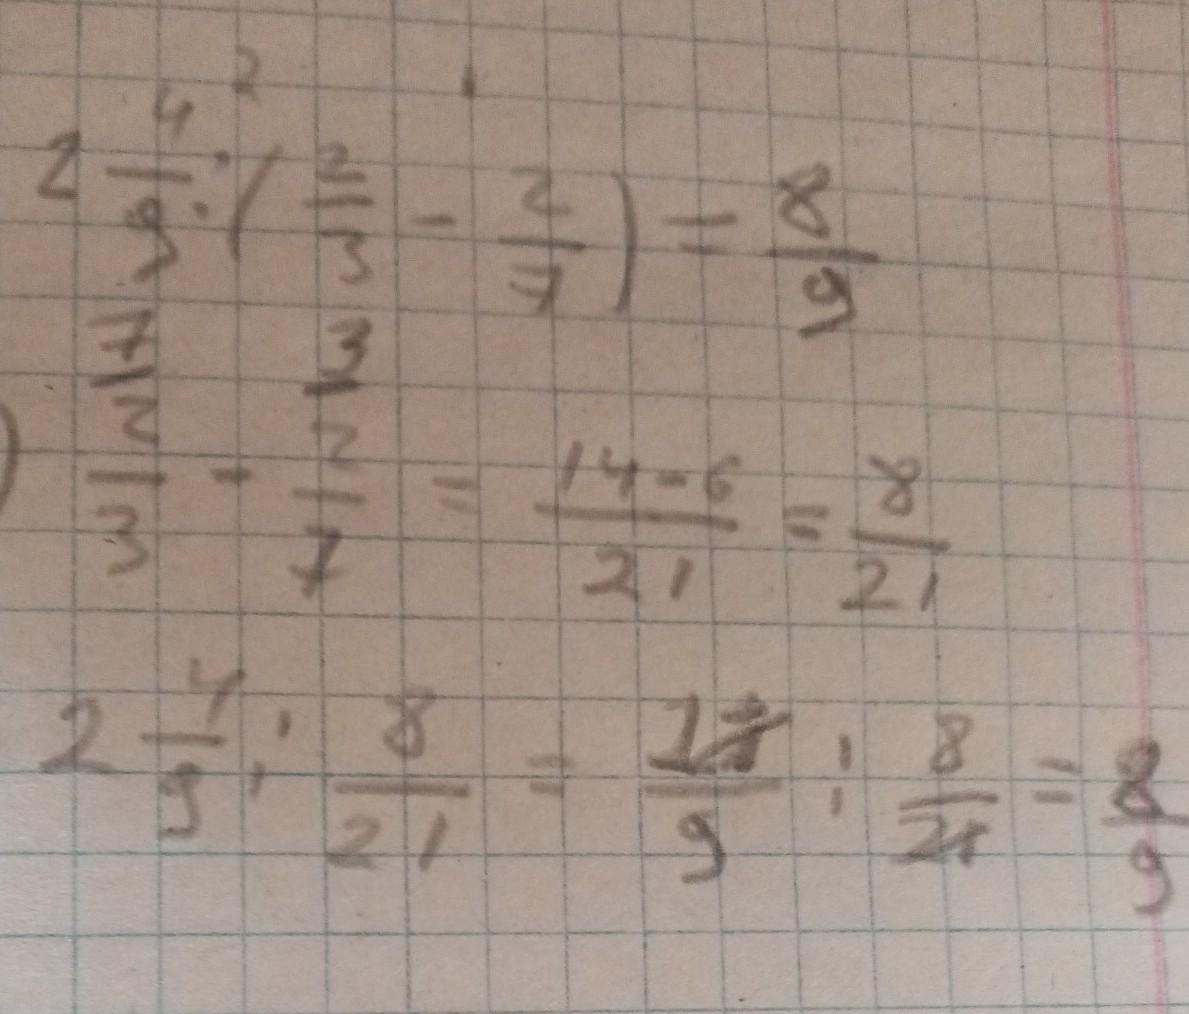 2 4/9 : (2/3 - 2/7) = 8/9
2/3 - 2/7 = 14-6/21 = 8/21
2 4/9 : 8/21 = : 8/21 = 8/9